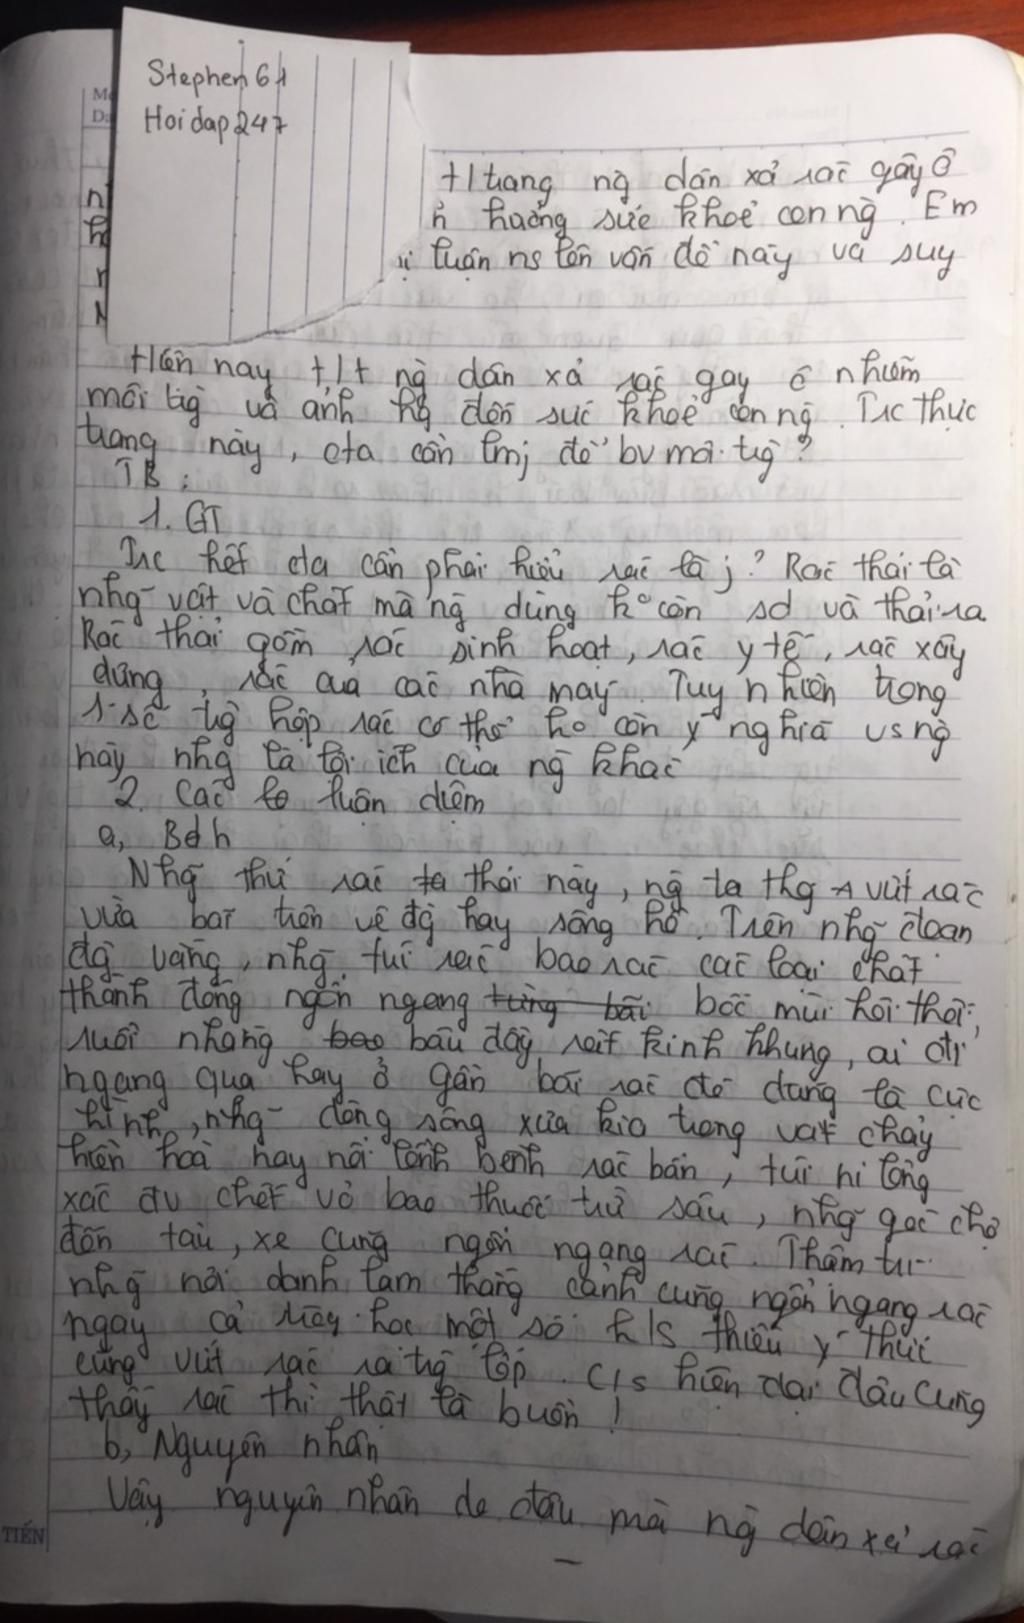 Stephen61
Hoidap247
t/trang ng dân xả rác gây ô
h hưởng sức khoẻ con ng. Em
luận ns lên vấn đề này và suy
Hiên nay t/t ng dân xả rác gay ô nhiễm
môi trg và ảnh hg đến sức khoẻ con ng. Trc thực
trang này, cta cần lmj để bv môi trg?
TB:
1. GT
Trc hết cta cần phải hiểu rác là j? Rác thải là
nhg vật và chất mà ng dùng ko còn sd và thải ra
Rác thải gồm rác sinh hoạt, rác y tế, rác xây
dựng, rác của các nhà máy. Tuy nhiên trong
1 số trg hợp rác có thể ko còn ý nghĩa vs ng
này nhg là lợi ích của ng khác
2. Các luận điệm
a, Bdh
Nhg thứ rác thải này, ng ta thg vứt rác
vừa bãi trên vê đg hay sông hồ. Trên nhg đoạn
đg vắng, nhg túi rác bao rác các loại chất
thành đống ngổn ngang từng bãi bốc mùi hôi thối,
ruồi nhặng bao bâu đầy rất kinh khủng, ai đi
ngang qua hay ở gần bãi rác đó đúng là cực
hình, nhg dòng sông xưa kia trong vắt chảy
hiền hoà nay nổi lềnh bềnh rác bẩn, túi ni lông
xác đv chết vỏ bao thuốc trừ sâu, nhg góc chợ
đến tàu, xe cũng ngổn ngang rác. Thậm trí
nhg nơi danh lam thắng cảnh cũng ngổn ngang rác
ngay cả học một số h/s thiếu ý thức
cũng vứt rác ra trg lớp. C/s hiện đại đâu cũng
thấy rác thì thật là buồn!
b, Nguyên nhân
Vậy nguyên nhân do đâu mà ng dân xả rác
TIẾN